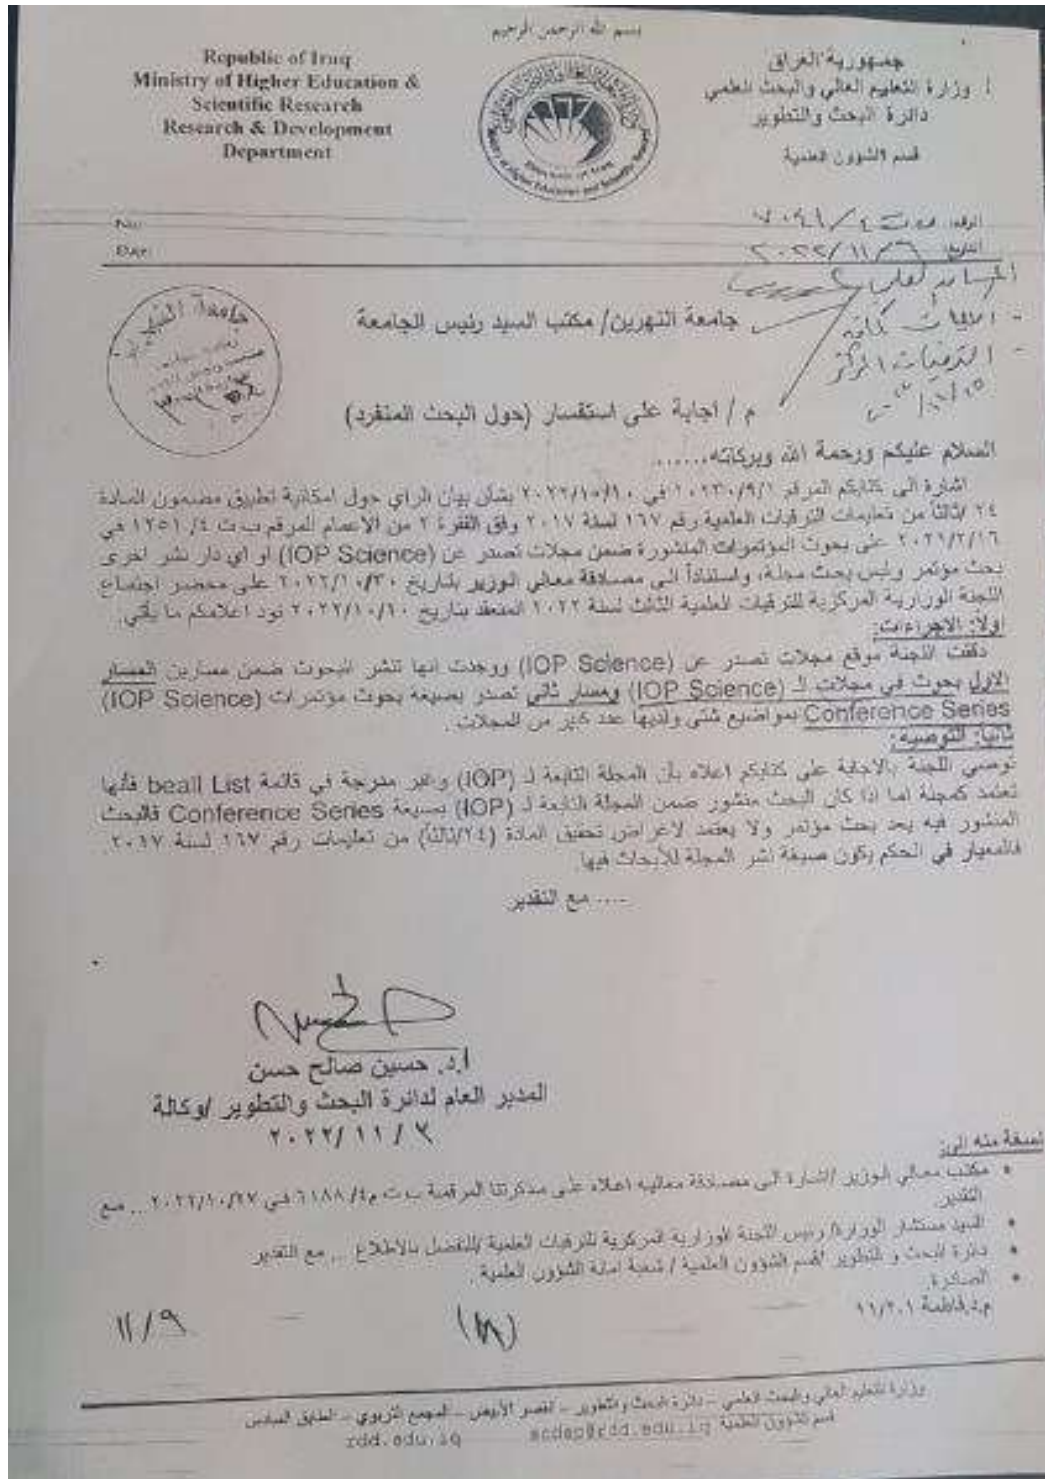 بسم الله الرحمن الرحيم
Republic of Iraq
Ministry of Higher Education &
Scientific Research
Research & Development
Department
جمهورية العراق
وزارة التعليم العالي والبحث العلمي
دائرة البحث والتطوير
قسم الشؤون العلمية
No:
Date:
الرقم: ب ت ٤ /
التاريخ: ٢٠٢٢/١١/٦
جامعة النهرين/ مكتب السيد رئيس الجامعة
م / اجابة على استفسار (حول البحث المنفرد)
السلام عليكم ورحمة الله وبركاته.......
اشارة الى كتابكم المرقم ١٠٢٣٠/٩/١ في ٢٠٢٢/١٠/١٠ بشأن بيان الراي حول امكانية تطبيق مضمون المادة
٢٤ /ثالثاً من تعليمات الترقيات العلمية رقم ١٦٧ لسنة ٢٠١٧ وفق الفقرة ٢ من الاعمام المرقم ب ت ٤/ ١٢٥١ في
٢٠٢١/٢/١٦ على بحوث المؤتمرات المنشورة ضمن مجلات تصدر عن (IOP Science) او اي دار نشر اخرى
بحث مؤتمر وليس بحث مجلة، واستناداً الى مصادقة معالي الوزير بتاريخ ٢٠٢٢/١٠/٣٠ على محضر اجتماع
اللجنة الوزارية المركزية للترقيات العلمية الثالث لسنة ٢٠٢٢ المنعقد بتاريخ ٢٠٢٢/١٠/٢٠ نود اعلامكم ما يأتي:
اولا: الاجراءات:
دققت اللجنة موقع مجلات تصدر عن (IOP Science) ووجدت انها تنشر البحوث ضمن مسارين المسار
الاول بحوث في مجلات الـ (IOP Science) ومسار ثاني تصدر بصيغة بحوث مؤتمرات (IOP Science)
Conference Series بمواضيع شتى ولديها عدد كبير من المجلات.
ثانيا: التوصية:
توصي اللجنة بالاجابة على كتابكم اعلاه بأن المجلة التابعة لـ (IOP) وغير مدرجة في قائمة beall List فأنها
تعتمد كمجلة اما اذا كان البحث منشور ضمن المجلة التابعة لـ (IOP) بصيغة Conference Series فالبحث
المنشور فيه يعد بحث مؤتمر ولا يعتمد لاغراض تحقيق المادة (٢٤/ثالثاً) من تعليمات رقم ١٦٧ لسنة ٢٠١٧.
فالمعيار في الحكم يكون صيغة نشر المجلة للأبحاث فيها.
.... مع التقدير
أ.د. حسين صالح حسن
المدير العام لدائرة البحث والتطوير /وكالة
٢٠٢٢/١١/٣
نسخة منه الى:
• مكتب معالي الوزير /اشارة الى مصادقة معاليه اعلاه على مذكرتنا المرقمة ب ت م٤/ ٦١٨٨ في ٢٠٢٢/١٠/٢٧ ... مع
التقدير.
• السيد مستشار الوزارة/ رئيس اللجنة الوزارية المركزية للترقيات العلمية /للتفضل بالاطلاع ... مع التقدير
• دائرة البحث و التطوير /قسم الشؤون العلمية / شعبة امانة الشؤون العلمية .
• الصادرة.
م.د.فاطمة ١١/٢.١
١١/٩
وزارة التعليم العالي والبحث العلمي – دائرة البحث والتطوير – القصر الأبيض – المجمع التربوي – الطابق السادس
قسم الشؤون العلمية scdep@rdd.edu.iq rdd.edu.iq